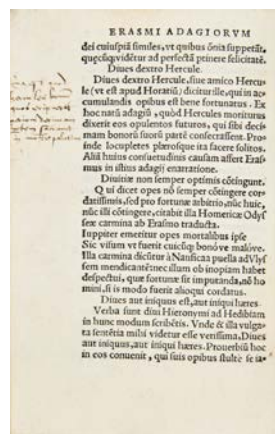 ERASMI ADAGIORVM
dei cuiuspiā similes, vt quibus ōnia suppetāt,
quęcūqꝫ vidētur ad perfectā ptinere felicitatē.
Diues dextro Hercule.
Diues dextro Hercule, siue amico Hercu
le (vt est apud Horatiū) dicitur ille, qui in ac-
cumulandis opibus est bene fortunatus. Ex
hoc natū adagiū, quòd Hercules moriturus
dixerit eos opulentos futuros, qui sibi deci-
mam bonorū suorū partē consecrassent. Pro-
inde locupletes plærosque ita facere solitos.
Aliā huius consuetudinis causam affert Eras-
mus in istius adagij enarratione.
Diuitiæ non semper optimis cōtingunt.
Qui dicet opes nō semper cōtingere cor-
datissimis, sed pro fortunæ arbitrio, nūc huic,
nūc illi cōtingere, citabit illa Homericæ Odyſ
seæ carmina ab Erasmo traducta.
Iuppiter emetitur opes mortalibus ipse
Sic visum vt fuerit cuicūqꝫ bonóve malóve.
Illa carmina dicūtur à Nausicaa puella ad Vlyſ
sem mendicantē: nec illum ob inopiam habet
despectui, quæ fortunæ sit imputanda, nō ho
mini, si is modo fuerit alioqui cordatus.
Diues aut iniquus est, aut iniqui hæres
Verba sunt diui Hieronymi ad Hedibiam
in hunc modum scribētis. Vnde & illa vulga-
ta sentētia mihi videtur esse verissima, Diues
aut iniquus, aut iniqui hæres. Prouerbiū hoc
in eos conuenit, qui suis opibus stulte se ia-